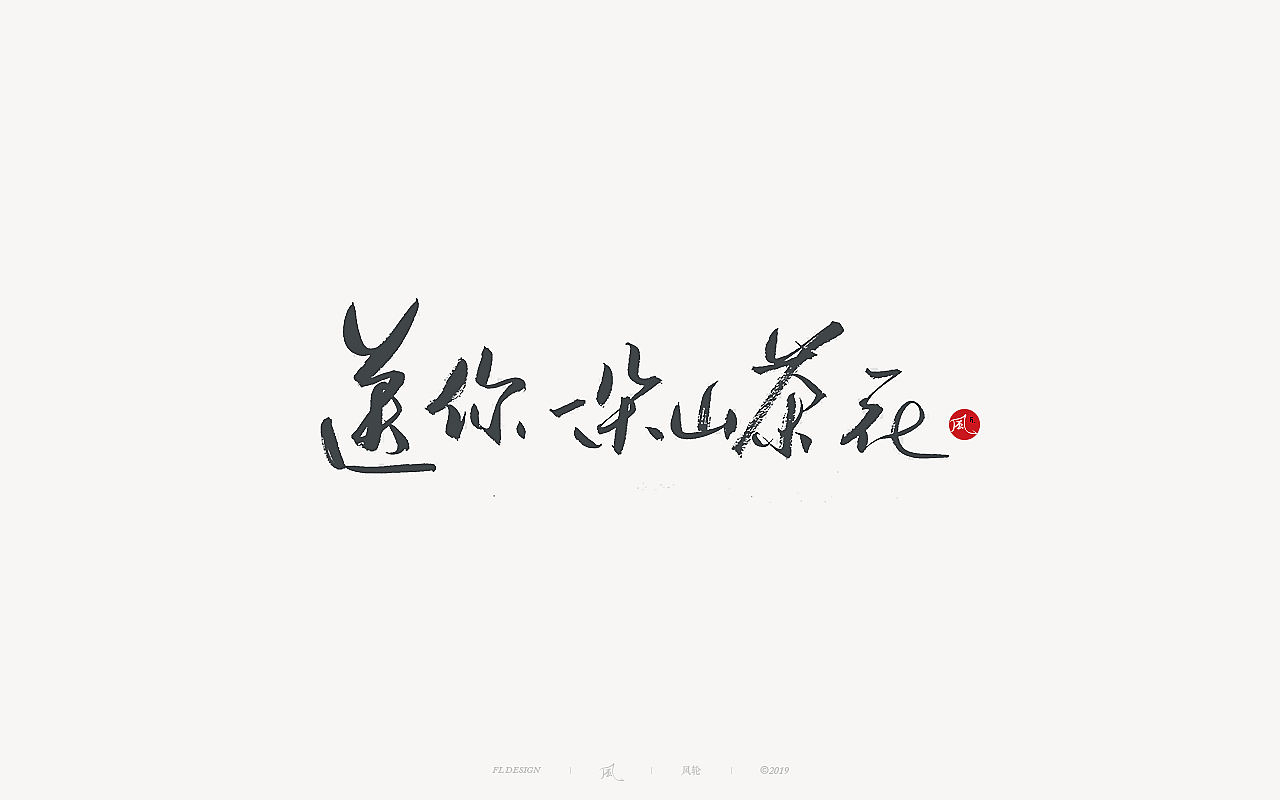 送你一朵山茶花 風
FLDESIGN | 風 | 风轮 | ©2019